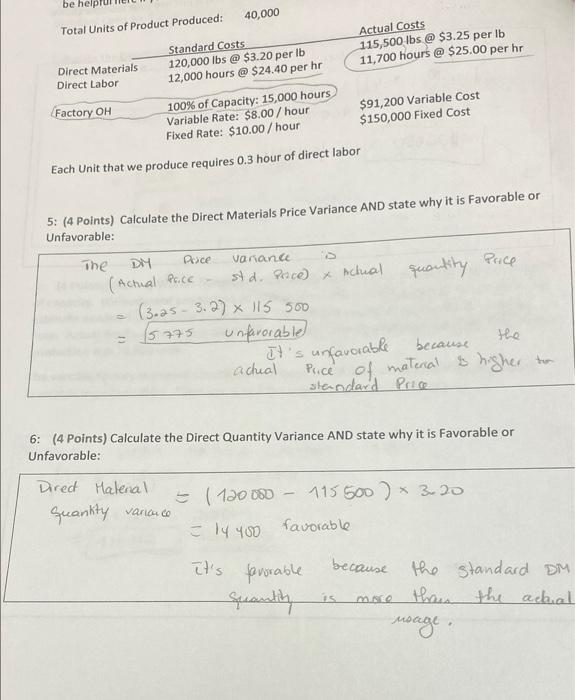 be helpful
Total Units of Product Produced: 40,000
Standard Costs Actual Costs
Direct Materials 120,000 lbs @ $3.20 per lb 115,500 lbs @ $3.25 per lb
Direct Labor 12,000 hours @ $24.40 per hr 11,700 hours @ $25.00 per hr
Factory OH 100% of Capacity: 15,000 hours
Variable Rate: $8.00 / hour $91,200 Variable Cost
Fixed Rate: $10.00 / hour $150,000 Fixed Cost
Each Unit that we produce requires 0.3 hour of direct labor
5: (4 Points) Calculate the Direct Materials Price Variance AND state why it is Favorable or
Unfavorable:
The DM Price variance is
(Actual Price - std. Price) x Actual quantity Price
= (3.25 - 3.2) x 115 500
= 5775 unfavorable
It's unfavorable because the
actual Price of material is higher than
standard Price
6: (4 Points) Calculate the Direct Quantity Variance AND state why it is Favorable or
Unfavorable:
Direct Material = (120 000 - 115 500) x 3.20
quantity variance
= 14 400 favorable
it's favorable because the standard DM
quantity is more than the actual
usage.